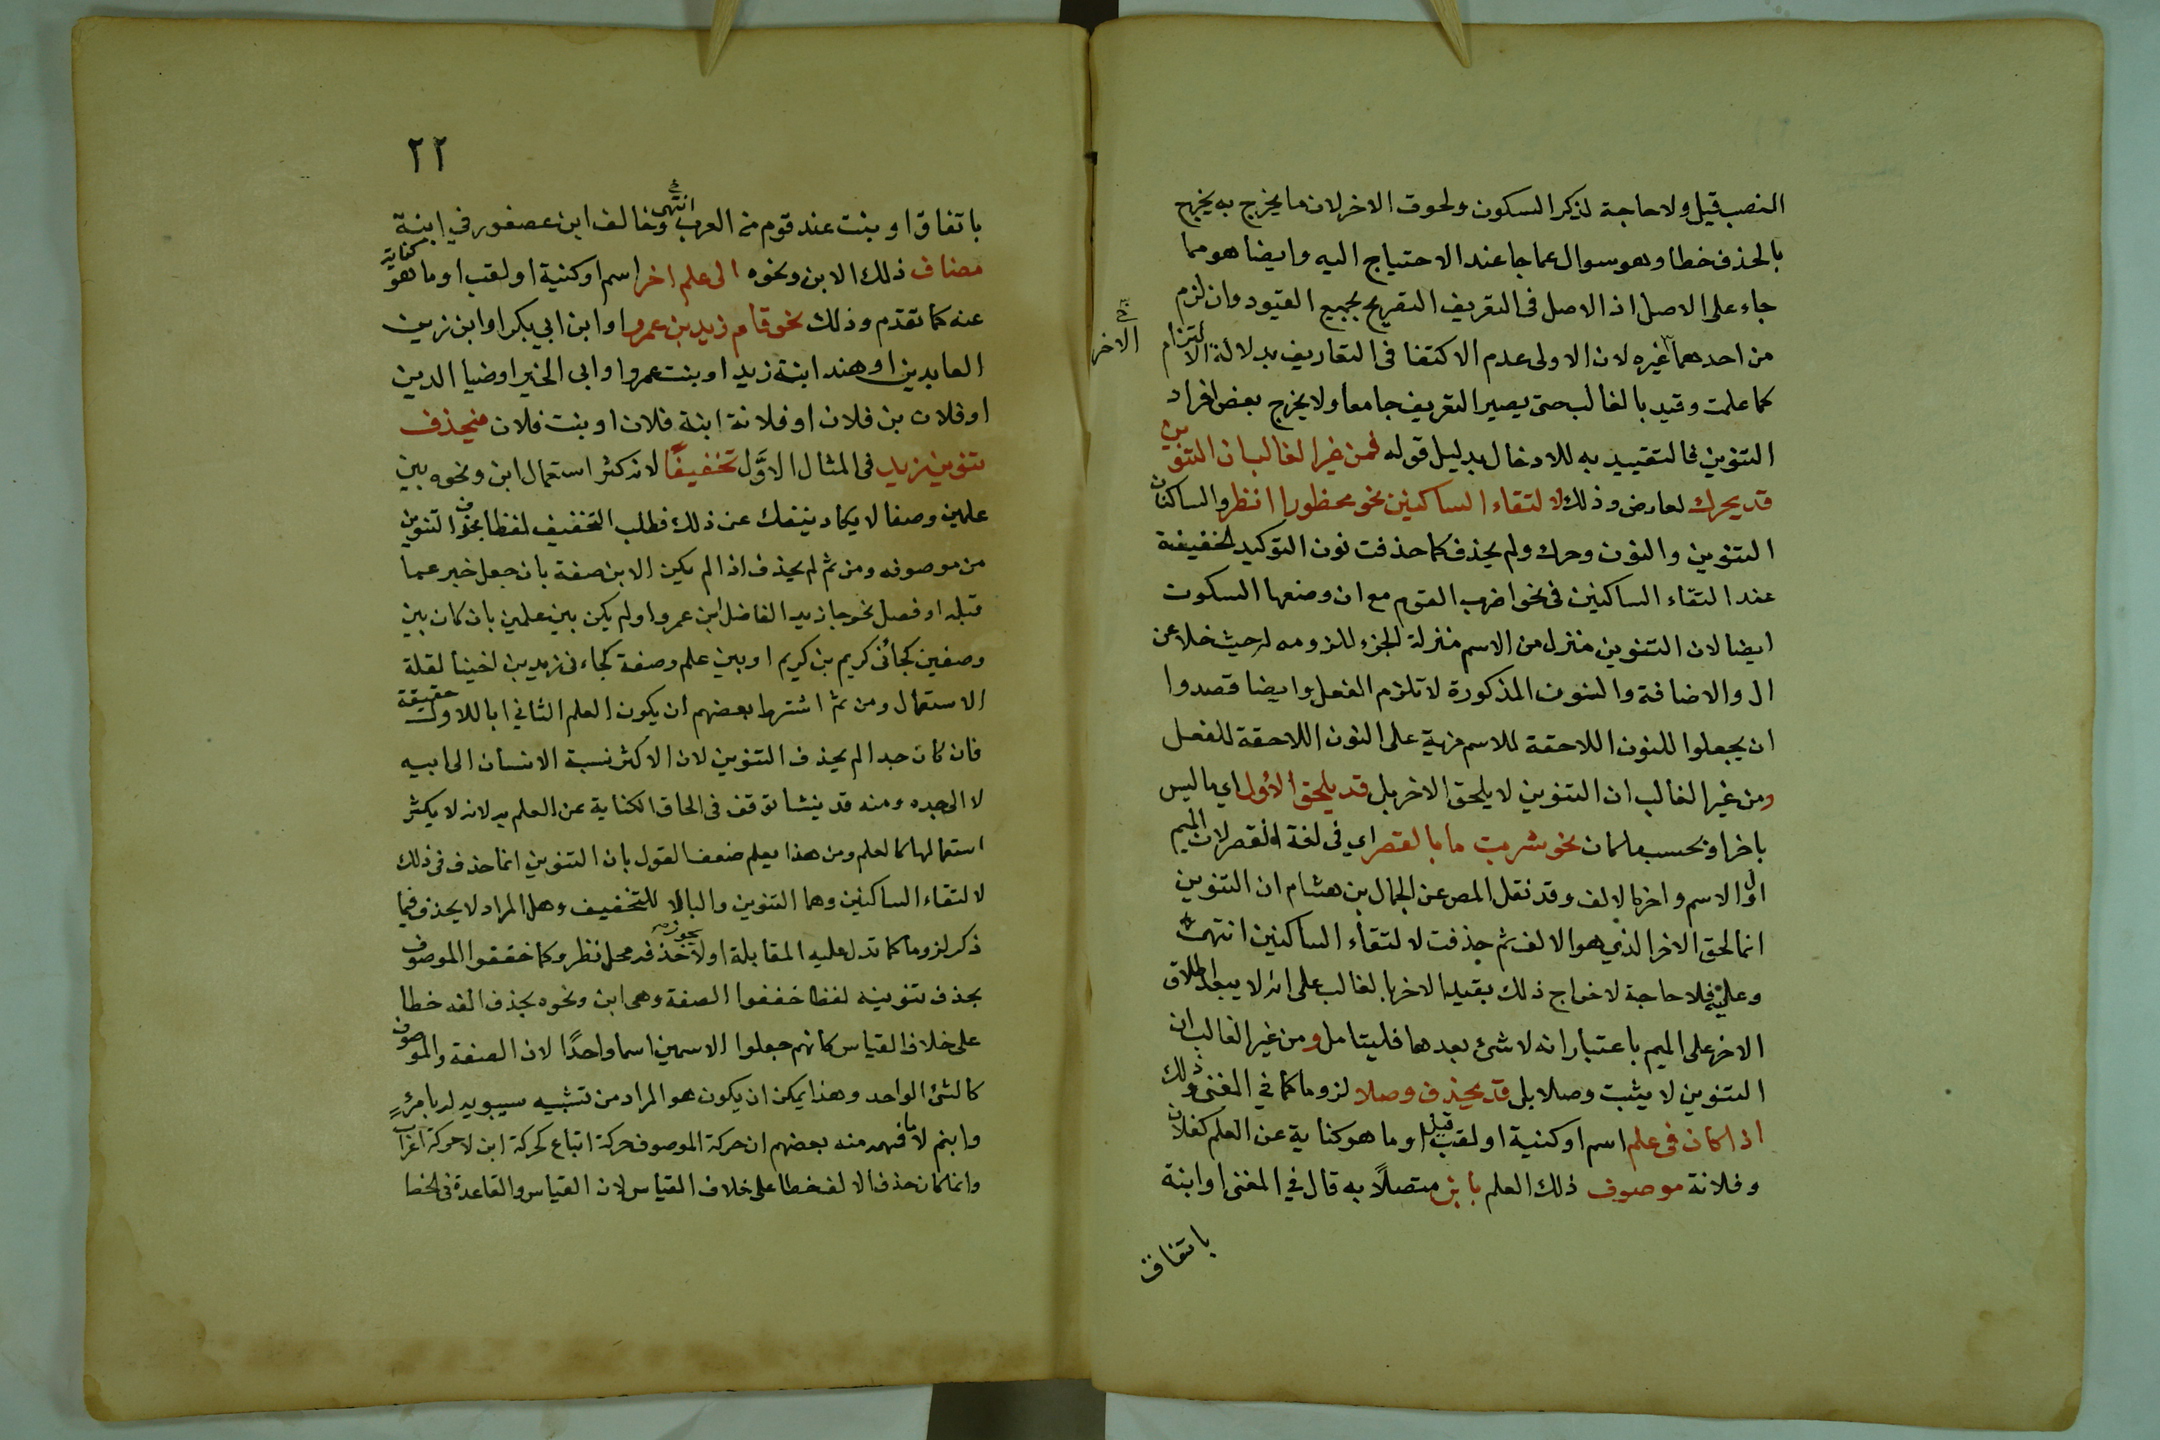 النصب قيل ولا حاجة لذكر السكون ولحوق الاخر لان ما يخرج به يخرج
بالحذف خطا وهو سوال عما جا عند الاحتياج اليه وايضا هو مما
جاء على الاصل اذ الاصل فى التعريف التصريح بجميع القيود وان لزم
من احدهما غيره لان الاولى عدم الاكتفا فى التعاريف بدلالة الالتزام
الاخر
كما علمت وقيد بالغالب حتى يصير التعريف جامعا ولا يخرج بعض افراد
التنوين فالتقييد به للادخال بدليل قوله فمن غير الغالب ان التنوين
قد يحرك لعارض وذلك لالتقاء الساكنين نحو محظورا انظر والساكنان
التنوين والنون وحرك ولم يحذف كما حذفت نون التوكيد الخفيفة
عند التقاء الساكنين فى نحو اضرب القوم مع ان وضعها السكون
ايضا لان التنوين منزل من الاسم منزلة الجزء للزومه له حيث خلا عن
ال والاضافة والنون المذكورة لا تلزم الفعل وايضا قصدوا
ان يجعلوا للنون اللاحقة للاسم مزية على النون اللاحقة للفعل
ومن غير الغالب ان التنوين لا يلحق الاخر بل قد يلحق الأول اى ما ليس
باخر او بحسب ما كان نحو شربت ما بالقصر اي فى لغة القصر لان الميم
اول الاسم واخره الالف وقد نقل المص عن الجمال بن هشام ان التنوين
انما لحق الاخر الذي هو الالف ثم حذفت لالتقاء الساكنين انتهى
وعليه فلا حاجة لاخراج ذلك بقيد الاخر بالغالب على انه لا يبعد اطلاق
الاخر على الميم باعتبار انه لا شئ بعدهما فليتامل ومن غير الغالب ان
التنوين لا يثبت وصلا بل قد يحذف وصلا لزوما كما في المغنى وذلك
اذا كان فى علم اسم او كنية او لقب قيل او ما هو كناية عن العلم كفلان
وفلانة موصوف ذلك العلم بابن متصلًا به قال في المغنى او ابنة
باتفاق
٢٢
باتفاق او بنت عند قوم من العرب انتهى وخالف ابن عصفور في ابنة
مضاف ذلك الابن ونحوه الى علم اخر اسم او كنية او لقب او ما هو كناية
عنه كما تقدم وذلك نحو قام زيد بن عمرو او ابن ابي بكر او ابن زين
العابدين او هند ابنة زيد او بنت عمرو او ابى الخير او ضيا الدين
او فلان بن فلان او فلانة ابنة فلان او بنت فلان فيحذف
تنوين زيد فى المثال الاوَّل تخفيفًا لانه كثر استعمال ابن ونحوه بين
علمين وصفا لا يكاد ينفك عن ذلك فطلب التخفيف لفظا بحذف التنوين
من موصوفه ومن ثم لم يحذف اذا لم يكن الابن صفة بان جعل خبر عما
قبله او فصل نحو جا زيد الفاضل ابن عمرو او لم يكن بين علمين بان كان بين
وصفين كجائنى كريم بن كريم او بين علم وصفة كجاءنى زيد بن اخينا لقلة
الاستعمال ومن ثم اشترط بعضهم ان يكون العلم الثاني ابا للاول حقيقة
فان كان جدا لم يحذف التنوين لان الاكثر نسبة الانسان الى ابيه
لا الى جده ومنه قد ينشا توقف فى الحاق الكناية عن العلم به لانه لا يكثر
استعمالها كالعلم ومن هذا يعلم ضعف القول بان التنوين انما حذف فى ذلك
لالتقاء الساكنين وهما التنوين والبا لا للتخفيف وهل المراد لا يحذف فيما
ذكر لزوما كما تدل عليه المقابلة اولا يجوز حذفه محل نظر وكما خففوا الموصوف
بحذف تنوينه لفظا خففوا الصفة وهى ابن ونحوه بحذف الفه خطا
على خلاف القياس كانهم جعلوا الاسمين اسما واحدًا لان الصفة والموصوف
كالشئ الواحد وهذا يمكن ان يكون هو المراد من تشبيه سيبويه له بامرئٍ
وابنم لا ما فهمه منه بعضهم ان حركة الموصوف حركة اتباع لحركة ابن لا حركة اعراب
وانما كان حذف الالف خطا على خلاف القياس لان القياس والقاعدة فى الخط